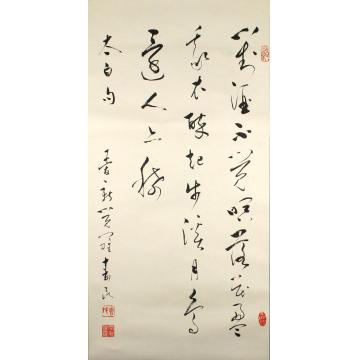 對酒不覺暝落花盈
我衣醉起步溪月鳥
還人亦稀
太白句
書民